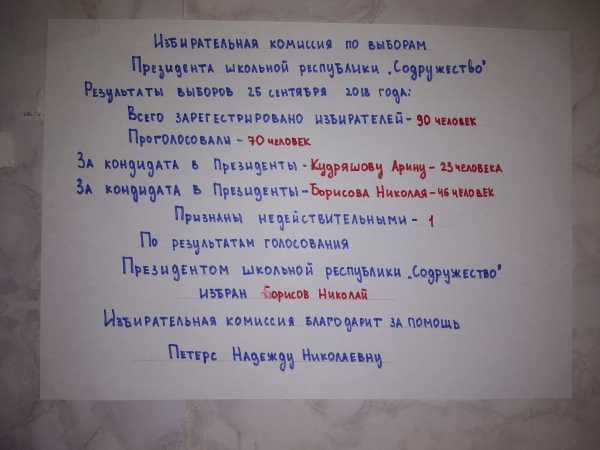 Избирательная комиссия по выборам
Президента школьной республики „Содружество"
Результаты выборов 25 сентября 2018 года:
Всего зарегестрировано избирателей - 90 человек
Проголосовали - 70 человек
За кондидата в Президенты - Кудряшову Арину - 23 человека
За кондидата в Президенты - Борисова Николая - 46 человек
Признаны недействительными - 1
По результатам голосования
Президентом школьной республики „Содружество"
избран Борисов Николай
Избирательная комиссия благодарит за помощь
Петерс Надежду Николаевну